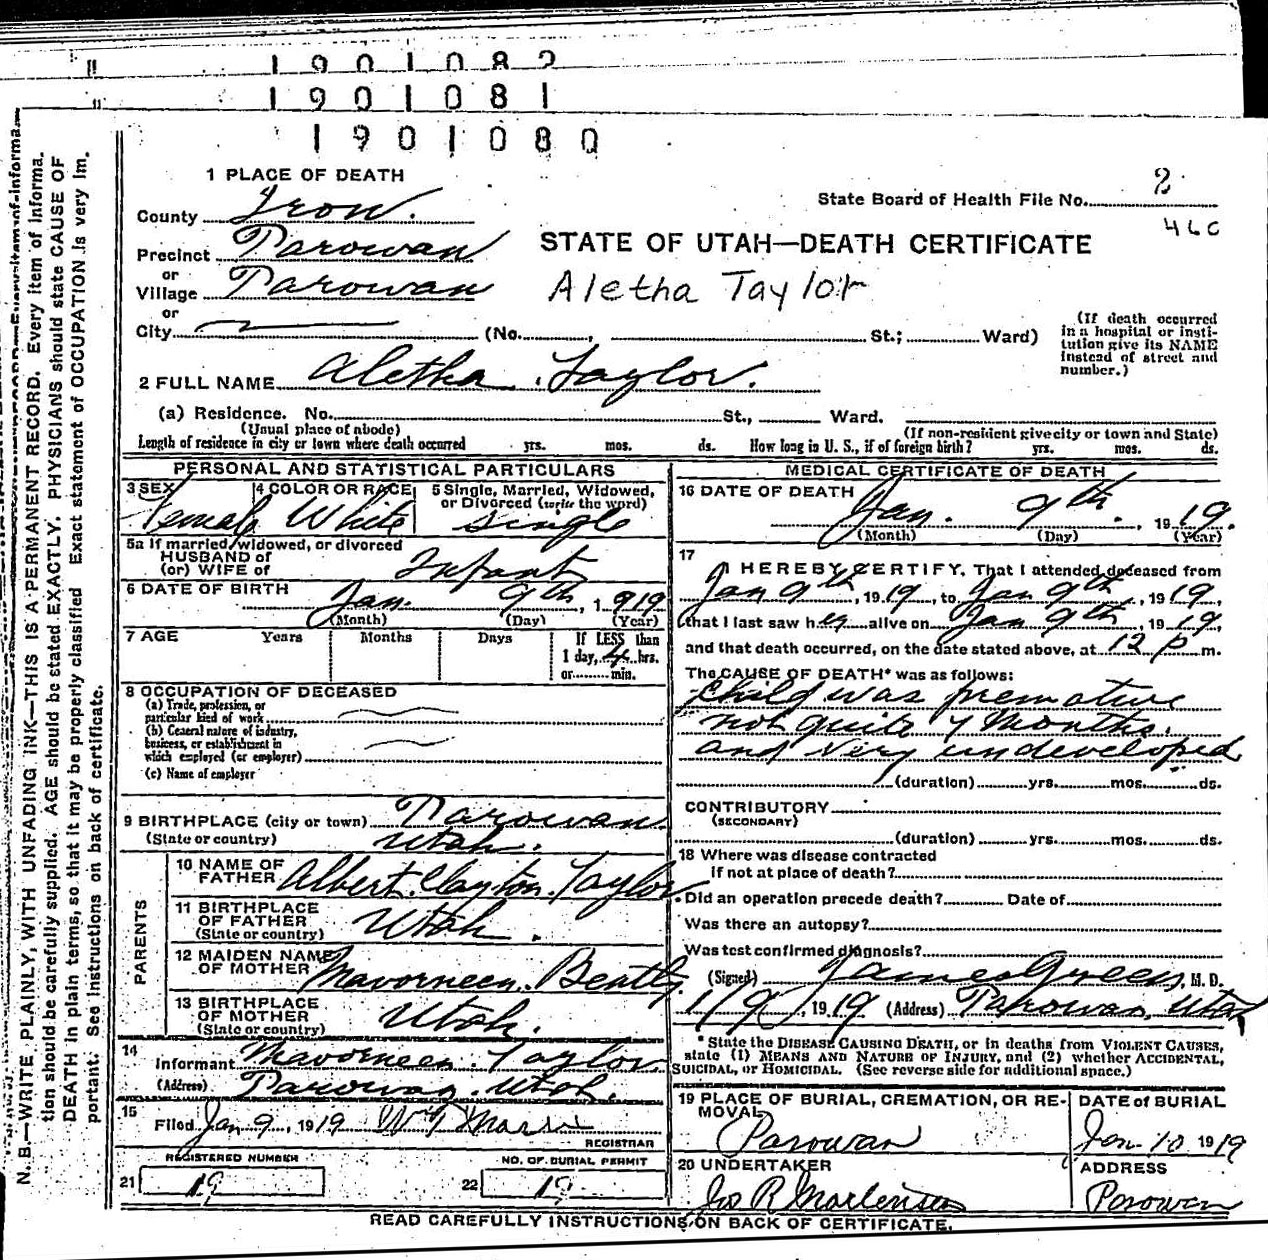 1901082
1901081
1901080
1 PLACE OF DEATH
State Board of Health File No. 2
46C
County Iron.
STATE OF UTAH—DEATH CERTIFICATE
Precinct Parowan
or
Village Parowan
Aletha Taylor
or
City (No. , St.; Ward)
(If death occurred in a hospital or insti-
tution give its NAME
instead of street and
number.)
2 FULL NAME Aletha Taylor.
(a) Residence. No. St., Ward.
(Usual place of abode) (If non-resident give city or town and State)
Length of residence in city or town where death occurred yrs. mos. ds. How long in U. S., if of foreign birth? yrs. mos. ds.
PERSONAL AND STATISTICAL PARTICULARS
3 SEX 4 COLOR OR RACE 5 Single, Married, Widowed,
or Divorced (write the word)
Female White single
5a If married, widowed, or divorced
HUSBAND of
(or) WIFE of Infant
6 DATE OF BIRTH Jan. 9th, 1919
(Month) (Day) (Year)
7 AGE Years Months Days If LESS than
1 day, 4 hrs.
or min.
8 OCCUPATION OF DECEASED
(a) Trade, profession, or
particular kind of work
(b) General nature of industry,
business, or establishment in
which employed (or employer)
(c) Name of employer
9 BIRTHPLACE (city or town) Parowan
(State or country) Utah.
PARENTS
10 NAME OF
FATHER Albert Clayton Taylor
11 BIRTHPLACE
OF FATHER
(State or country) Utah.
12 MAIDEN NAME
OF MOTHER Mavorneen Beatty
13 BIRTHPLACE
OF MOTHER
(State or country) Utah.
14
Informant Mavorneen Taylor
(Address) Parowan, Utah.
15
Filed Jan 9, 1919
REGISTRAR
REGISTERED NUMBER NO. OF BURIAL PERMIT
21 19 22 19
MEDICAL CERTIFICATE OF DEATH
16 DATE OF DEATH
Jan. 9th., 1919.
(Month) (Day) (Year)
17
I HEREBY CERTIFY, That I attended deceased from
Jan 9th, 1919, to Jan 9th, 1919,
that I last saw her alive on Jan 9th, 1919,
and that death occurred, on the date stated above, at 12 p m.
The CAUSE OF DEATH* was as follows:
Child was premature
not quite 7 months.
and very undeveloped
(duration) yrs. mos. ds.
CONTRIBUTORY
(SECONDARY)
(duration) yrs. mos. ds.
18 Where was disease contracted
if not at place of death?
Did an operation precede death? Date of
Was there an autopsy?
Was test confirmed diagnosis?
(Signed) James Green, M. D.
1/9, 1919 (Address) Parowan, Utah
*State the DISEASE CAUSING DEATH, or in deaths from VIOLENT CAUSES,
state (1) MEANS AND NATURE OF INJURY, and (2) whether ACCIDENTAL,
SUICIDAL, or HOMICIDAL. (See reverse side for additional space.)
19 PLACE OF BURIAL, CREMATION, OR RE-
MOVAL
Parowan
DATE of BURIAL
Jan 10 1919
20 UNDERTAKER
Jos R Mortensen
ADDRESS
Parowan
READ CAREFULLY INSTRUCTIONS ON BACK OF CERTIFICATE.
N. B.—WRITE PLAINLY, WITH UNFADING INK—THIS IS A PERMANENT RECORD. Every item of informa-
tion should be carefully supplied. AGE should be stated EXACTLY. PHYSICIANS should state CAUSE OF
DEATH in plain terms, so that it may be properly classified Exact statement of OCCUPATION is very im-
portant. See instructions on back of certificate.